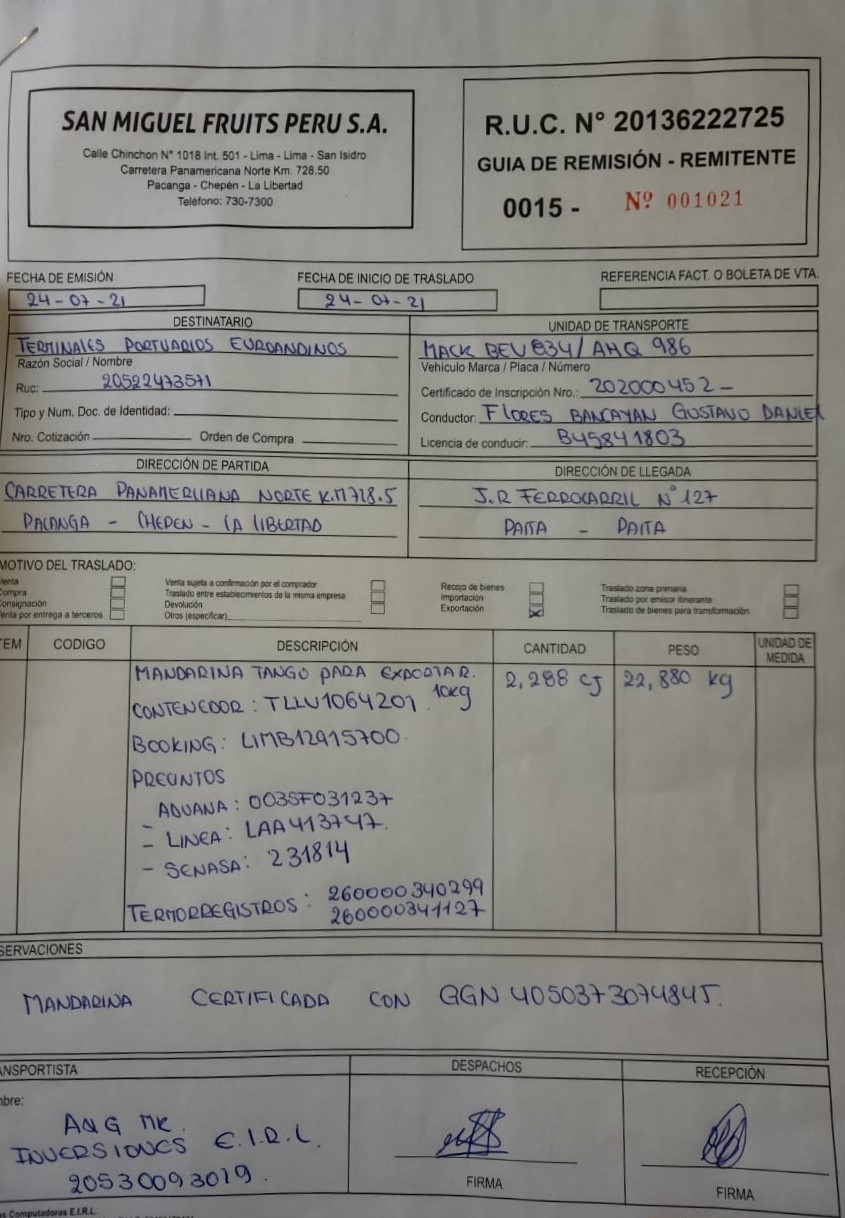 SAN MIGUEL FRUITS PERU S.A.
Calle Chinchon N° 1018 Int. 501 - Lima - Lima - San Isidro
Carretera Panamericana Norte Km. 728.50
Pacanga - Chepén - La Libertad
Teléfono: 730-7300
R.U.C. N° 20136222725
GUIA DE REMISIÓN - REMITENTE
0015 - Nº 001021
FECHA DE EMISIÓN
24-07-21
FECHA DE INICIO DE TRASLADO
24-07-21
REFERENCIA FACT. O BOLETA DE VTA.
DESTINATARIO
TERMINALES PORTUARIOS EUROANDINOS
Razón Social / Nombre
Ruc: 20522473571
Tipo y Num. Doc. de Identidad:
Nro. Cotización Orden de Compra
UNIDAD DE TRANSPORTE
MACK BEV834/AHQ 986
Vehículo Marca / Placa / Número
Certificado de Inscripción Nro.: 202000452-
Conductor: FLORES BANCAYAN GUSTAVO DANIEL
Licencia de conducir: B45841803
DIRECCIÓN DE PARTIDA
CARRETERA PANAMERICANA NORTE K.M 728.5
PACANGA - CHEPEN - LA LIBERTAD
DIRECCIÓN DE LLEGADA
J.R FERROCARRIL N° 127
PAITA - PAITA
MOTIVO DEL TRASLADO:
Venta
Compra
Consignación
Venta por entrega a terceros
Venta sujeta a confirmación por el comprador
Traslado entre establecimientos de la misma empresa
Devolución
Otros (especificar)
Recojo de bienes
Importación
Exportación X
Traslado zona primaria
Traslado por emisor itinerante
Traslado de bienes para transformación
TEM CODIGO DESCRIPCIÓN CANTIDAD PESO UNIDAD DE MEDIDA
MANDARINA TANGO PARA EXPORTAR. 2,288 CJ 22,880 kg
10kg
CONTENEDOR: TLLU1064201
BOOKING: LIMB12915700.
PRECINTOS
ADUANA: 003SF031237
- LINEA: LAA413747.
- SENASA: 231814
TERMORREGISTROS: 260000340299
260000341127
SERVACIONES
MANDARINA CERTIFICADA CON GGN 4050373074845.
ANSPORTISTA
mbre:
A&G MK.
INVERSIONES E.I.R.L.
20530093019.
DESPACHOS
FIRMA
RECEPCIÓN
FIRMA
os Computadoras E.I.R.L.